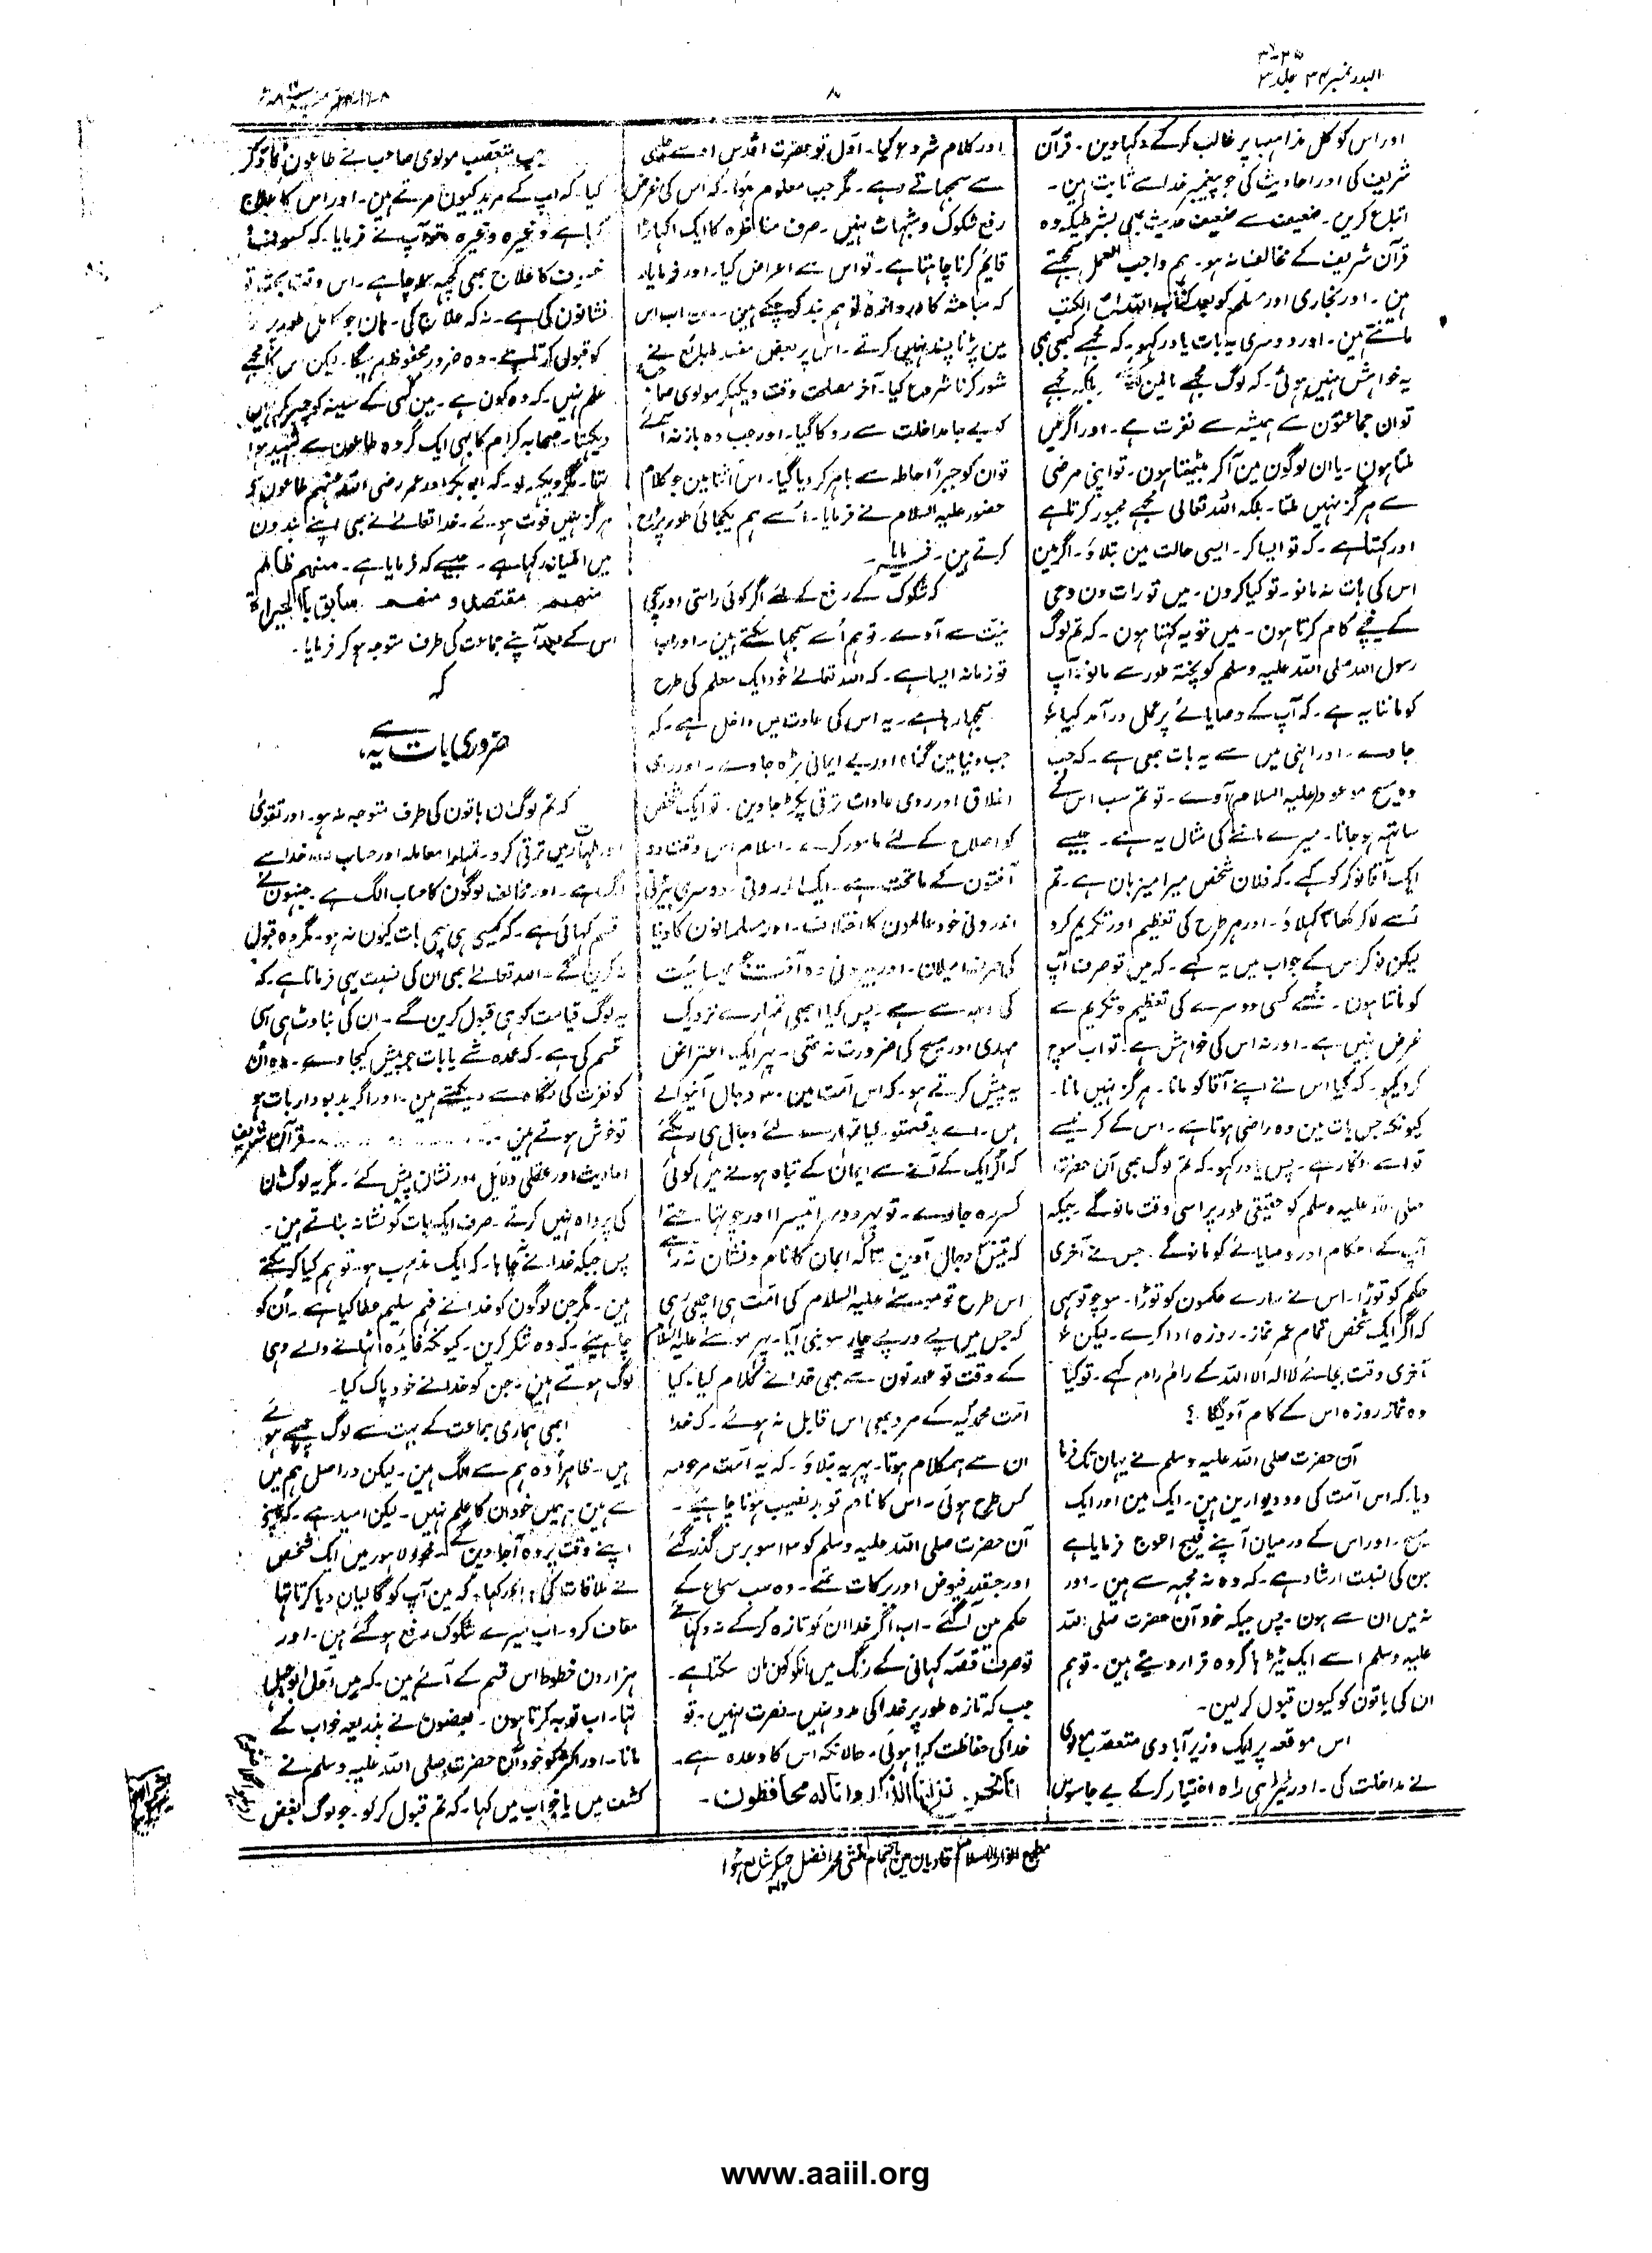 البدر نمبر ۳۴ جلد ۳
۸
اور اس کو کل مذاہب پر غالب کرکے دکہاوین۔ قرآن
شریف کی اور احادیث کی جو پیغمبر خدا سے ثابت ہین۔
اتباع کرین۔ ضعیف سے ضعیف حدیث بھی بشرطیکہ وہ
قرآن شریف کے مخالف نہ ہو۔ ہم واجب العمل سمجھتے
ہین۔ اور بخاری اور مسلم کو بعد کتاب اللہ اصح الکتب
مانتے ہین۔ اور دوسری یہ بات یاد رکہو۔ کہ مجھے کبھی بھی
یہ خواہش نہیں ہوئی۔ کہ لوگ مجھے مانین بلکہ مجھے
تو ان جماعتون سے ہمیشہ سے نفرت ہے۔ اور اگر میں
ملتا ہون۔ یا ان لوگون مین آکر بیٹھتا ہون۔ تو اپنی مرضی
سے ہرگز نہیں ملتا۔ بلکہ اللہ تعالی مجھے مجبور کرتا ہے
اور کہتا ہے۔ کہ تو ایسا کر۔ ایسی حالت مین بتلاؤ۔ اگر مین
اس کی بات نہ مانو۔ تو کیا کرون۔ میں تو رات دن وحی
کے نیچے کام کرتا ہون۔ میں تو یہ کہتا ہون۔ کہ تم لوگ
رسول اللہ صلی اللہ علیہ وسلم کو پختہ طور سے مانو۔ آپ
کو ماننا یہ ہے۔ کہ آپ کے وصایائے پر عمل درآمد کیا
جاوے۔ اور انہی میں سے یہ بات بھی ہے۔ کہ جب
وہ مسیح موعود (علیہ السلام) آوے۔ تو تم سب اس کے
ساتہہ ہو جانا۔ میرے ماننے کی مثال یہ ہے۔ جیسے
ایک آقا نوکر کو کہے۔ کہ فلان شخص میرا میزبان ہے۔ تم
اُسے لاکر کھانا کہلاؤ۔ اور ہر طرح کی تعظیم اور تکریم کرو
لیکن نوکر اس کے جواب میں یہ کہے۔ کہ میں تو صرف آپ
کو مانتا ہون۔ مجھے کسی دوسرے کی تعظیم و تکریم سے
غرض نہیں ہے۔ اور نہ اس کی خواہش ہے۔ تو اب سوچ
کر دیکہو۔ کہ کیا اس نے اپنے آقا کو مانا۔ ہرگز نہیں مانا۔
کیونکہ جس بات مین وہ راضی ہوتا ہے۔ اس کے کرنیسے
تو اسے انکار ہے۔ پس یاد رکہو۔ کہ تم لوگ بھی آن حضرت
صلی اللہ علیہ وسلم کو حقیقی طور پر اسی وقت مانوگے۔ جبکہ
آپ کے احکام اور وصایائے کو مانوگے۔ جس نے آخری
حکم کو توڑا۔ اس نے سارے حکمون کو توڑا۔ سوچو تو سہی
کہ اگر ایک شخص تمام عمر نماز۔ روزہ ادا کرے۔ لیکن
آخری وقت بجائے لا الہ الا اللہ کے رام رام کہے۔ تو کیا
وہ نماز روزہ اس کے کام آویگا ؟
آن حضرت صلی اللہ علیہ وسلم نے یہان تک فرما
دیا۔ کہ اس امت کی دو دیوارین ہین۔ ایک مین اور ایک
مسیح۔ اور اس کے درمیان آپنے فیج اعوج فرمایا ہے
جن کی نسبت ارشاد ہے۔ کہ وہ نہ مجہہ سے ہین۔ اور
نہ میں ان سے ہون۔ پس جبکہ خود آن حضرت صلی اللہ
علیہ وسلم اسے ایک ٹیڑہا گروہ قرار دیتے ہین۔ تو ہم
ان کی باتون کو کیون قبول کرلین۔
اس موقعہ پر ایک وزیر آبادی متعصب مولوی
نے مداخلت کی۔ اور ٹیڑہی راہ اختیار کرکے بے جا سوال
اور کلام شروع کیا۔ اول تو حضرت اقدس اوسے حلیمی
سے سمجہاتے رہے۔ مگر جب معلوم ہوا۔ کہ اس کی غرض
رفع شکوک و شبہات نہیں۔ صرف مناظرہ کا ایک اکہاڑا
قایم کرنا چاہتا ہے۔ تو اس سے اعراض کیا۔ اور فرمایا۔
کہ مباحثہ کا دروازہ تو ہم بند کرچکے ہین۔ اب اس
مین پڑنا پسند نہیں کرتے۔ اس پر بعض مفسد طبائع نے
شور کرنا شروع کیا۔ آخر مصلحت وقت دیکہکر مولوی صاحب
کو بے جا مداخلت سے روکا گیا۔ اور جب وہ باز نہ آئے
تو ان کو جبراً احاطہ سے باہر کر دیا گیا۔ اس اثنا مین جو کلام
حضور علیہ السلام نے فرمایا۔ اُسے ہم یکجائی طور پر درج
کرتے ہین۔ فرمایا۔
کہ شکوک کے رفع کے لئے اگر کوئی راستی اور سچی
نیت سے آوے۔ تو ہم اُسے سمجہا سکتے ہین۔ اور اب
تو زمانہ ایسا ہے۔ کہ اللہ تعالیٰ خود ایک معلم کی طرح
سمجہا رہا ہے۔ یہ اس کی عادت میں داخل ہے۔ کہ
جب دنیا مین گناہ اور بے ایمانی بڑہ جاوے۔ اور ردی
اخلاق اور ردی عادات ترقی پکڑ جاوین۔ تو ایک شخص
کو اصلاح کے لئے مامور کرے۔ اسلام اس وقت دو
آفتون کے ماتحت ہے۔ ایک اندرونی۔ دوسری بیرونی
اندرونی خود عالمون کا اختلاف۔ اور مسلمانون کا دنیا
کی طرف میلان۔ اور بیرونی وہ آفت جو عیسائیت
کی وجہ سے ہے۔ پس کیا ابھی تمہارے نزدیک
مہدی اور مسیح کی ضرورت نہ تھی۔ پہر ایک اعتراض
یہ پیش کرتے ہو۔ کہ اس امت مین ۳۰ دجال آنیوالے
ہیں۔ اے بدقسمتو۔ کیا تمہارے لئے دجال ہی رہگئے
کہ اگر ایک کے آنے سے ایمان کے تباہ ہونے میں کوئی
کسر رہ جاوے۔ تو پہر دوسرا تیسرا اور چوتہا۔ حتےٰ
کہ تیس دجال آوین تاکہ ایمان کا نام و نشان نہ رہے
اس طرح تو موسےٰ علیہ السلام کی امت ہی اچھی رہی
کہ جس میں پے در پے چار سو نبی آیا۔ پہر موسےٰ علیہ السلام
کے وقت تو عورتون سے بھی خدا نے کلام کیا۔ کیا
امت محمدیہ کے مرد بھی اس قابل نہ ہوئے۔ کہ خدا
ان سے ہمکلام ہوتا۔ پہر یہ بتلاؤ۔ کہ یہ امت مرحومہ
کس طرح ہوئی۔ اس کا نام تو بد نصیب ہونا چاہئے۔
آن حضرت صلی اللہ علیہ وسلم کو ۱۳ سو برس گذر گئے
اور جسقدر فیوض اور برکات تھے۔ وہ سب سماع کے
حکم مین آگئے۔ اب اگر خدا ان کو تازہ کرکے نہ دکہائے
تو صرف قصہ کہانی کے رنگ میں انکو کون مان سکتا ہے۔
جب کہ تازہ طور پر خدا کی مدد نہیں۔ نصرت نہیں۔ تو
خدا کی حفاظت کیا ہوئی۔ حالانکہ اس کا وعدہ ہے۔
انا نحن نزلنا الذکر وانا لہ محافظون۔
متعصب مولوی صاحب نے طاعون کا ذکر
کیا۔ کہ آپ کے مرید کیون مرتے ہین۔ اور اس کا علاج
کیا ہے وغیرہ وغیرہ تو آپ نے فرمایا۔ کہ کسوف
خسوف کا علاج بھی کچہہ سوچا ہے۔ اس وقت بحث تو
نشانون کی ہے۔ نہ کہ علاج کی۔ ہان جو کامل طور پر
کو قبول کرتا ہے۔ وہ ضرور محفوظ رہیگا۔ لیکن اس کا مجھے
علم نہیں۔ کہ وہ کون ہے۔ مین کسی کے سینہ کو چیر کر نہیں
دیکہتا۔ صحابہ کرام کا بہی ایک گروہ طاعون سے شہید ہوا
تہا۔ مگر دیکہہ لو۔ کہ ابوبکر اور عمر رضی اللہ عنہم طاعون سے
ہرگز نہیں فوت ہوئے۔ خدا تعالےٰ نے بھی اپنے بندون
میں امتیاز رکہا ہے۔ جیسے کہ فرمایا ہے۔ منہم ظالم
منہم مقتصد و منہم سابق بالخیرات
اس کے بعد آپنے جماعت کی طرف متوجہ ہو کر فرمایا۔
کہ
ضروری بات یہ ہے
کہ تم لوگ ان باتون کی طرف متوجہ نہ ہو۔ اور تقویٰ
اور طہارت میں ترقی کرو۔ تمہارا معاملہ اور حساب خدا سے
الگ ہے۔ اور مخالف لوگون کا حساب الگ ہے۔ جنہون نے
قسم کہائی ہے۔ کہ کیسی ہی سچی بات کیون نہ ہو۔ مگر وہ قبول
نہ کرین گے۔ اللہ تعالےٰ بھی ان کی نسبت یہی فرماتا ہے۔ کہ
یہ لوگ قیامت کو ہی قبول کرین گے۔ ان کی بناوٹ ہی اسی
قسم کی ہے۔ کہ عمدہ شے یا بات جو پیش کیجاوے۔ وہ اُس
کو نفرت کی نگاہ سے دیکہتے ہین۔ اور اگر بدبودار بات ہو
تو خوش ہوتے ہین ۔۔۔۔۔۔ قرآن شریف
احادیث اور عقلی دلایل اور نشان پیش کئے۔ مگر یہ لوگ ان
کی پرواہ نہیں کرتے۔ صرف ایک بات کو نشانہ بناتے ہین۔
پس جبکہ خدا نے چاہا۔ کہ ایک مذہب ہو۔ تو ہم کیا کرسکتے
ہین۔ مگر جن لوگون کو خدا نے فہم سلیم عطا کیا ہے۔ اُن کو
چاہیئے۔ کہ وہ شکر کرین۔ کیونکہ فایدہ اٹہانے والے وہی
لوگ ہوتے ہین۔ جن کو خدا نے خود پاک کیا۔
ابھی ہماری جماعت کے بہت سے لوگ چھپے ہوئے
ہیں۔ ظاہراً وہ ہم سے الگ ہین۔ لیکن دراصل ہم میں
سے ہین۔ ہمیں خود ان کا علم نہیں۔ لیکن امید ہے۔ کہ اپنے
اپنے وقت پر وہ آجاوین گے۔ خود لاہور میں ایک شخص
نے ملاقات کی اور کہا۔ کہ مین آپ کو گالیان دیا کرتا تہا
معاف کرو۔ اب میرے شکوک رفع ہوگئے ہین۔ اور
ہزارون خطوط اس قسم کے آئے ہین۔ کہ میں اول ابوجہل
تہا۔ اب توبہ کرتا ہون۔ بعضون نے بذریعہ خواب کے
مانا۔ اور اکثر کو خود آن حضرت صلی اللہ علیہ وسلم نے
کشف میں یا خواب میں کہا۔ کہ تم قبول کرلو۔ جو لوگ بغض
مطبع انوار الاسلام قادیان مین باہتمام منشی محمد افضل چہپکر شایع ہوا
www.aaiil.org